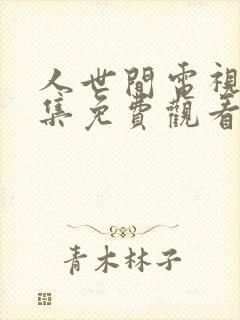 人世間電視
集免費觀看
青木林子